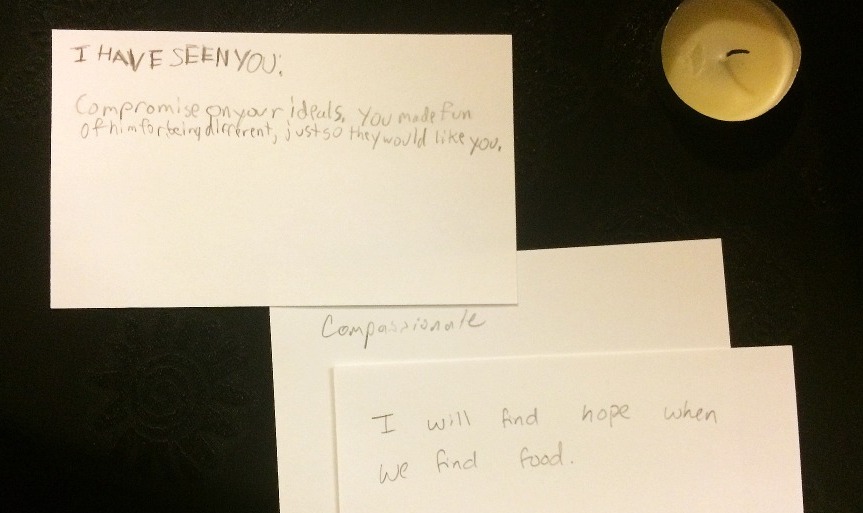 I HAVE SEEN YOU:
Compromise on your ideals. You made fun
of him for being different, just so they would like you.
Compassionate
I will find hope when
we find food.